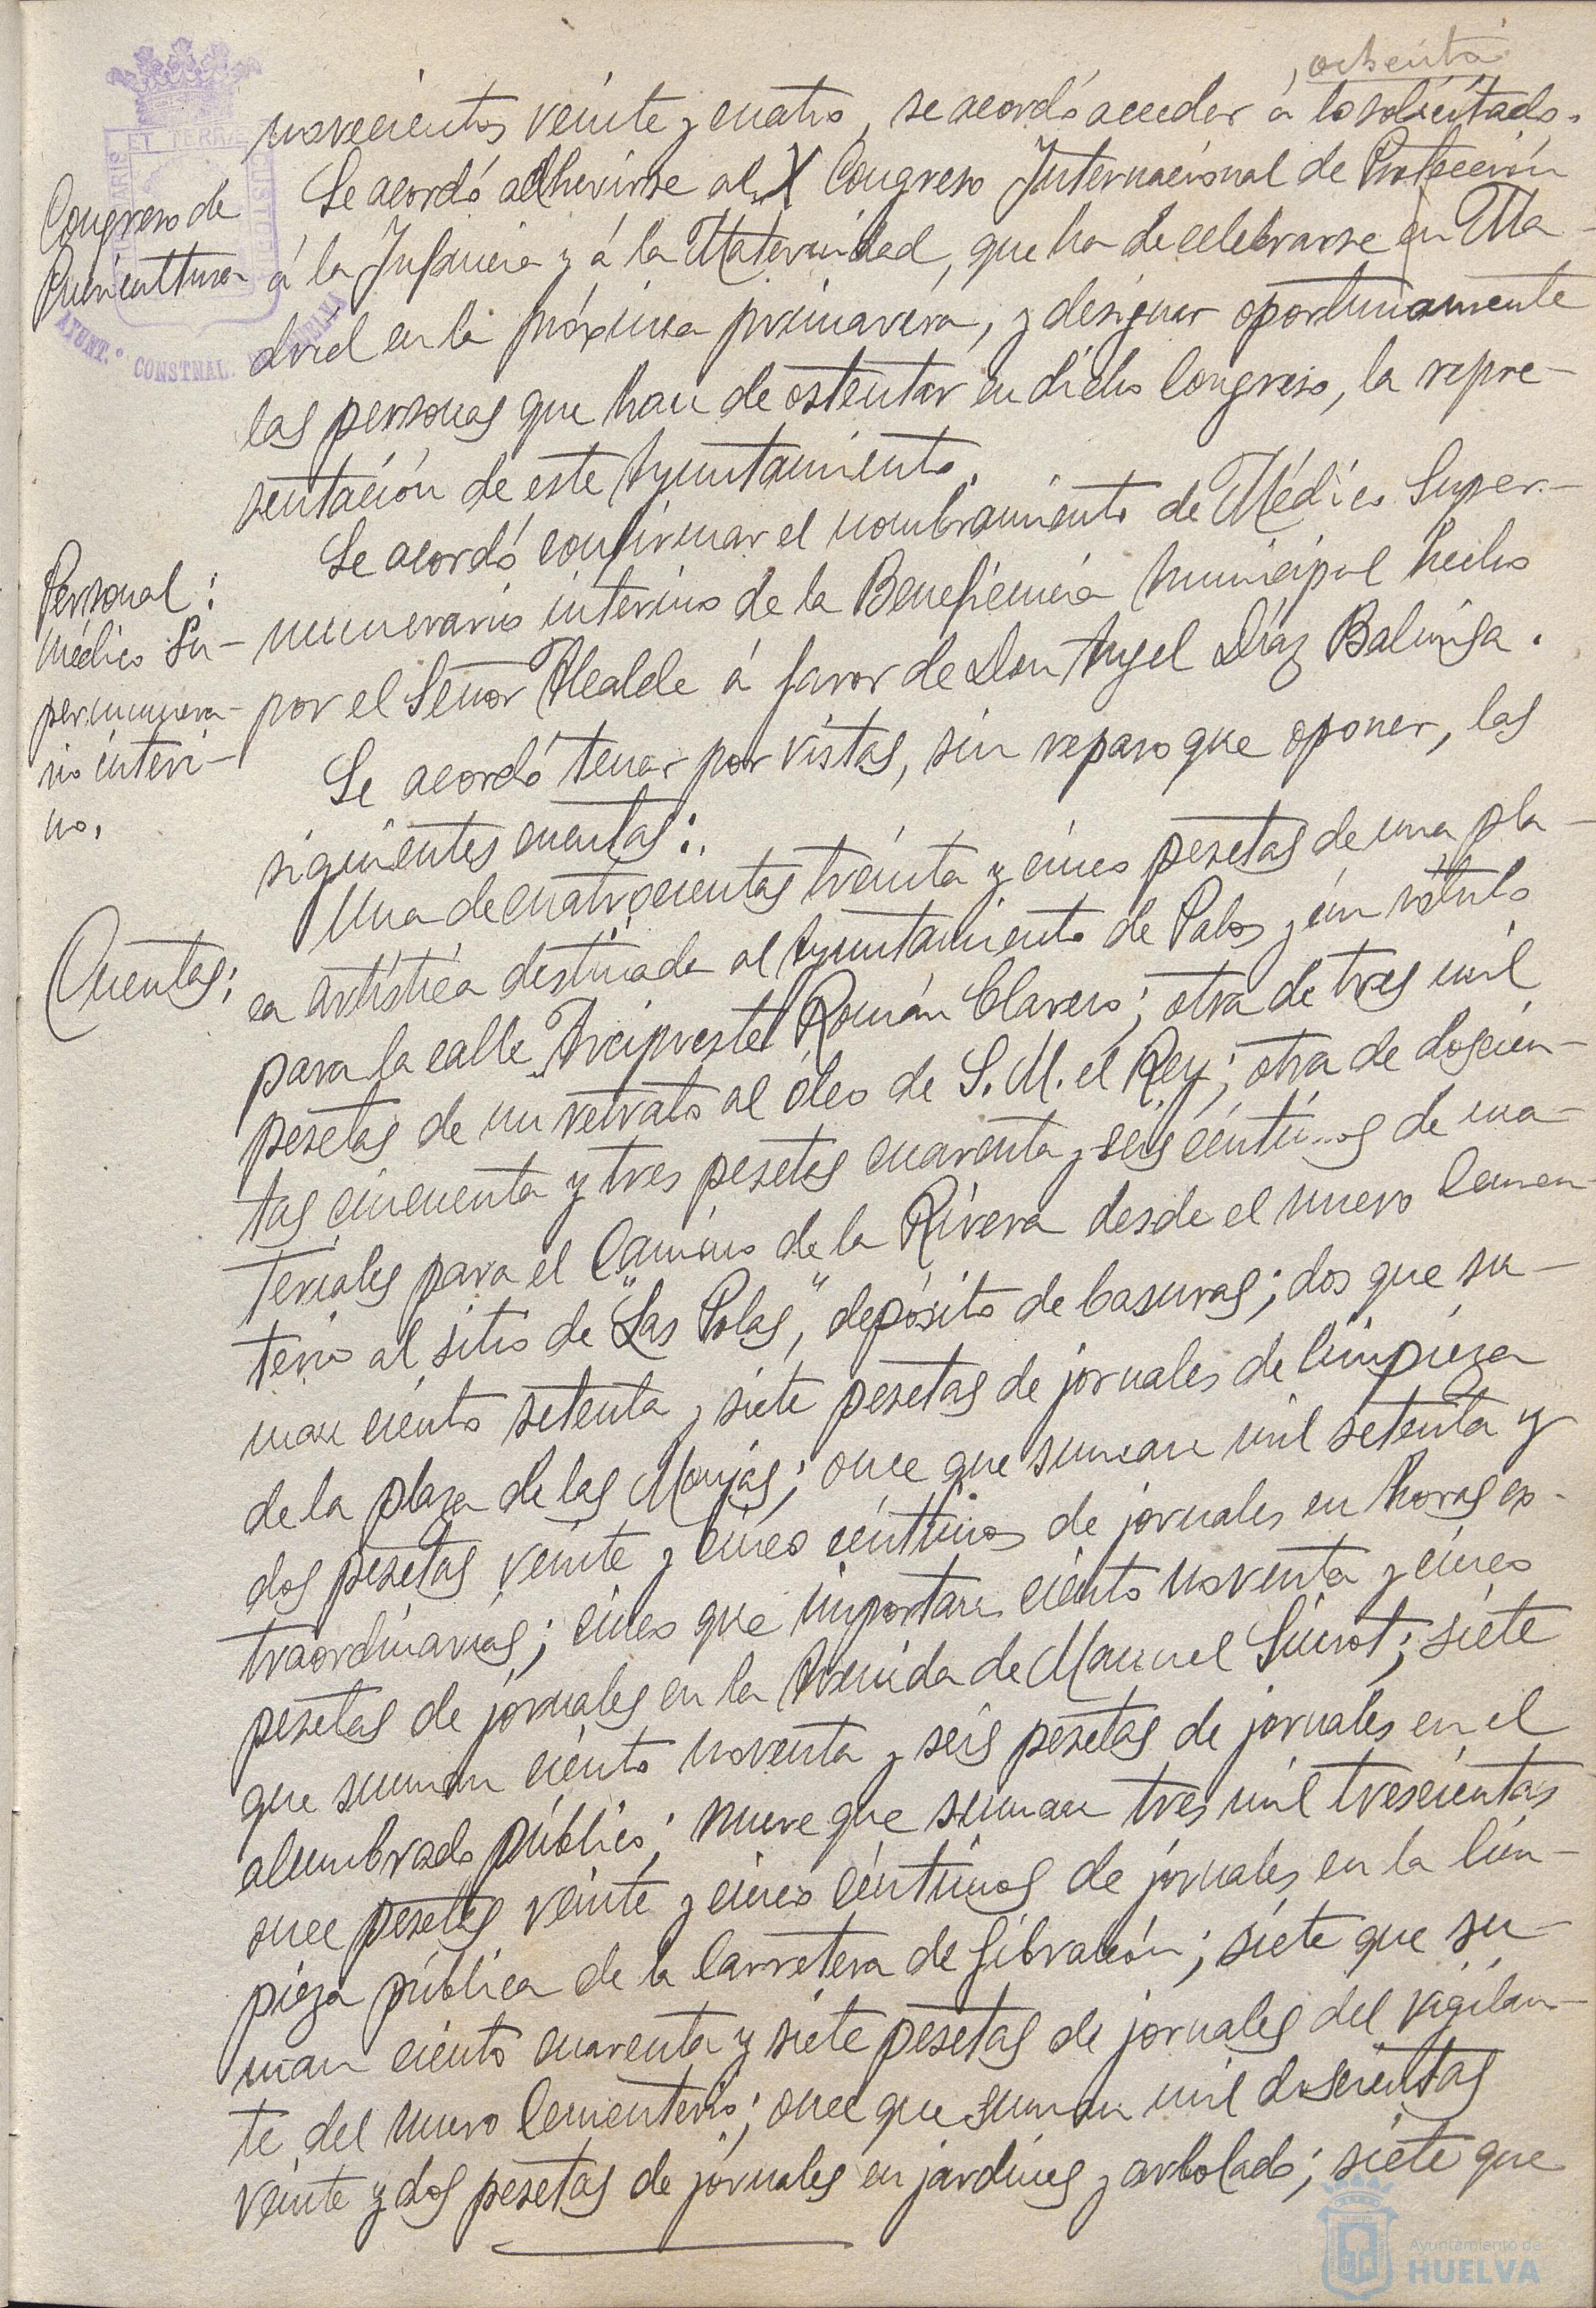 , ochenta
novecientos veinte y cuatro, se acordó acceder á lo solicitado.
Congreso de
Puericultura
Se acordó adherirse al X Congreso Internacional de Protección
á la Infancia y á la Maternidad, que ha de celebrarse en Ma-
drid en la próxima primavera, y designar oportunamente
las personas que han de ostentar en dicho Congreso, la repre-
sentación de este Ayuntamiento.
Personal:
Médico Su-
pernumera-
rio interi-
no.
Se acordó confirmar el nombramiento de Médico Super-
numerario interino de la Beneficencia Municipal hecho
por el Señor Alcalde á favor de Don Angel Díaz Balmisa.
Se acordó tener por vistas, sin reparo que oponer, las
siguientes cuentas:
Cuentas:
Una de cuatrocientas treinta y cinco pesetas de una pla-
ca artística destinada al Ayuntamiento de Palos y un rótulo
para la calle "Arcipreste" Román Clavero; otra de tres mil
pesetas de un retrato al óleo de S. M. el Rey; otra de doscien-
tas cincuenta y tres pesetas cuarenta y seis céntimos de ma-
teriales para el Camino de la Rivera desde el nuevo Cemen-
terio al sitio de "Las Polas", depósito de basuras; dos que su-
man ciento setenta y siete pesetas de jornales de limpieza
de la plaza de las Monjas; once que suman mil setenta y
dos pesetas veinte y cinco céntimos de jornales en horas ex-
traordinarias; cinco que importan ciento noventa y cinco
pesetas de jornales en la Avenida de Manuel Siurot; siete
que suman ciento noventa y seis pesetas de jornales en el
alumbrado público; nueve que suman tres mil trescientas
once pesetas veinte y cinco céntimos de jornales en la lim-
pieza pública de la Carretera de Gibraleón; siete que su-
man ciento cuarenta y siete pesetas de jornales del vigilan-
te del nuevo Cementerio; once que suman mil doscientas
veinte y dos pesetas de jornales en jardines y arbolado; siete que
ET TERRÆ
CUSTODIA
AYUNT.º CONSTNAL.
Ayuntamiento de
HUELVA